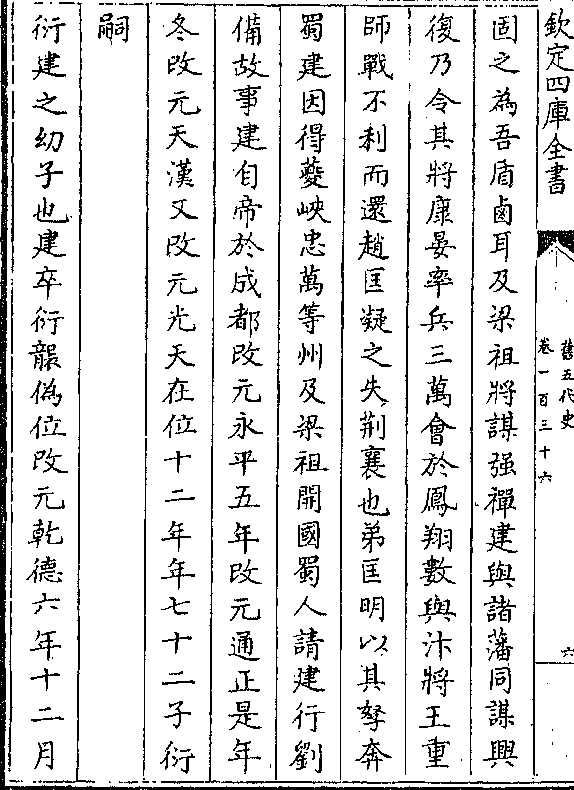 欽定四庫全書
舊五代史
卷一百三十六
六
固之為吾盾鹵耳及梁祖將謀强禪建與諸藩同謀興
復乃令其將康晏率兵三萬會於鳳翔數與汴將王重
師戰不利而還趙匡凝之失荆襄也弟匡明以其孥奔
蜀建因得夔峽忠萬等州及梁祖開國蜀人請建行劉
備故事建自帝於成都改元永平五年改元通正是年
冬改元天漢又改元光天在位十二年年七十二子衍
嗣
衍建之幼子也建卒衍襲偽位改元乾德六年十二月